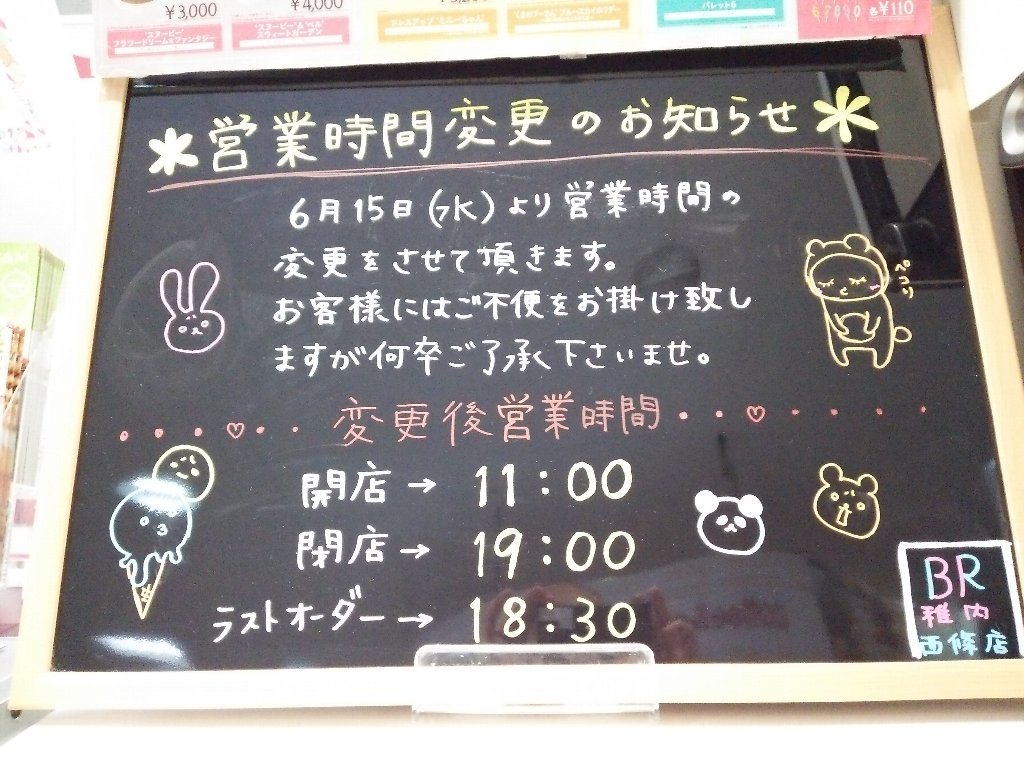 ¥3,000
"スヌーピー"
フラワードリーム&ファンタジー
¥4,000
"スヌーピー"&"ベル"
スウィートガーデン
ドレスアップ"ミニーちゃん"
パレット6
67890 各¥110
*営業時間変更のお知らせ*
6月15日(水)より営業時間の
変更をさせて頂きます。
お客様にはご不便をお掛け致し
ますが何卒ご了承下さいませ。
ペコリ
変更後営業時間
開店→ 11:00
閉店→ 19:00
ラストオーダー→ 18:30
BR
稚内
西條店